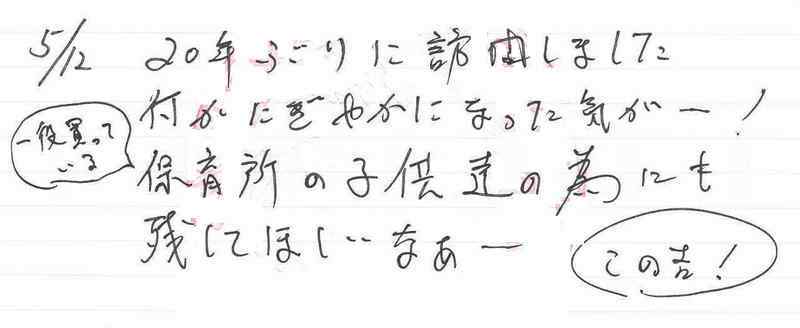 5/12 20年ぶりに訪問しました
何かにぎやかになった気がー!
一役買って
いる
保育所の子供達の為にも
残してほしいなぁー
この吉!